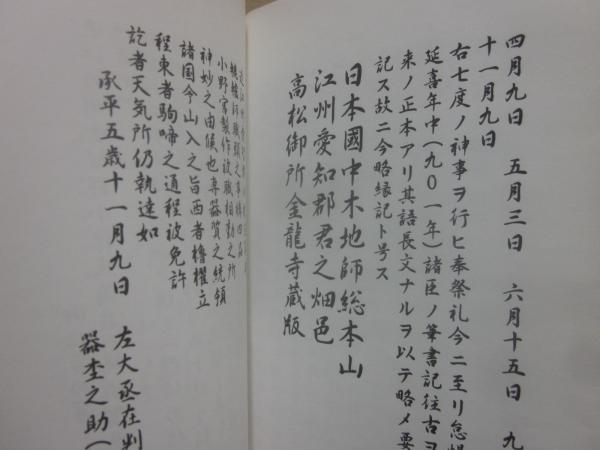 四月九日　五月三日　六月十五日　九
十一月九日
右七度ノ神事ヲ行ヒ奉祭礼今ニ至リ怠
延喜年中(九〇一年)諸臣ノ筆書記往古ヲ
来ノ正本アリ其語長文ナルヲ以テ略メ要
記ス故ニ今略縁記ト号ス
日本國中木地師総本山
江州愛知郡君之畑邑
高松御所金龍寺蔵版
小野宮製作彼職相勤之所
神妙之由候也専器質之統領
諸国令山入之旨西者櫓櫂立
程東者駒啼之通程被免許
訖者天気所仍執達如
承平五歳十一月九日
左大丞在判
器杢之助(